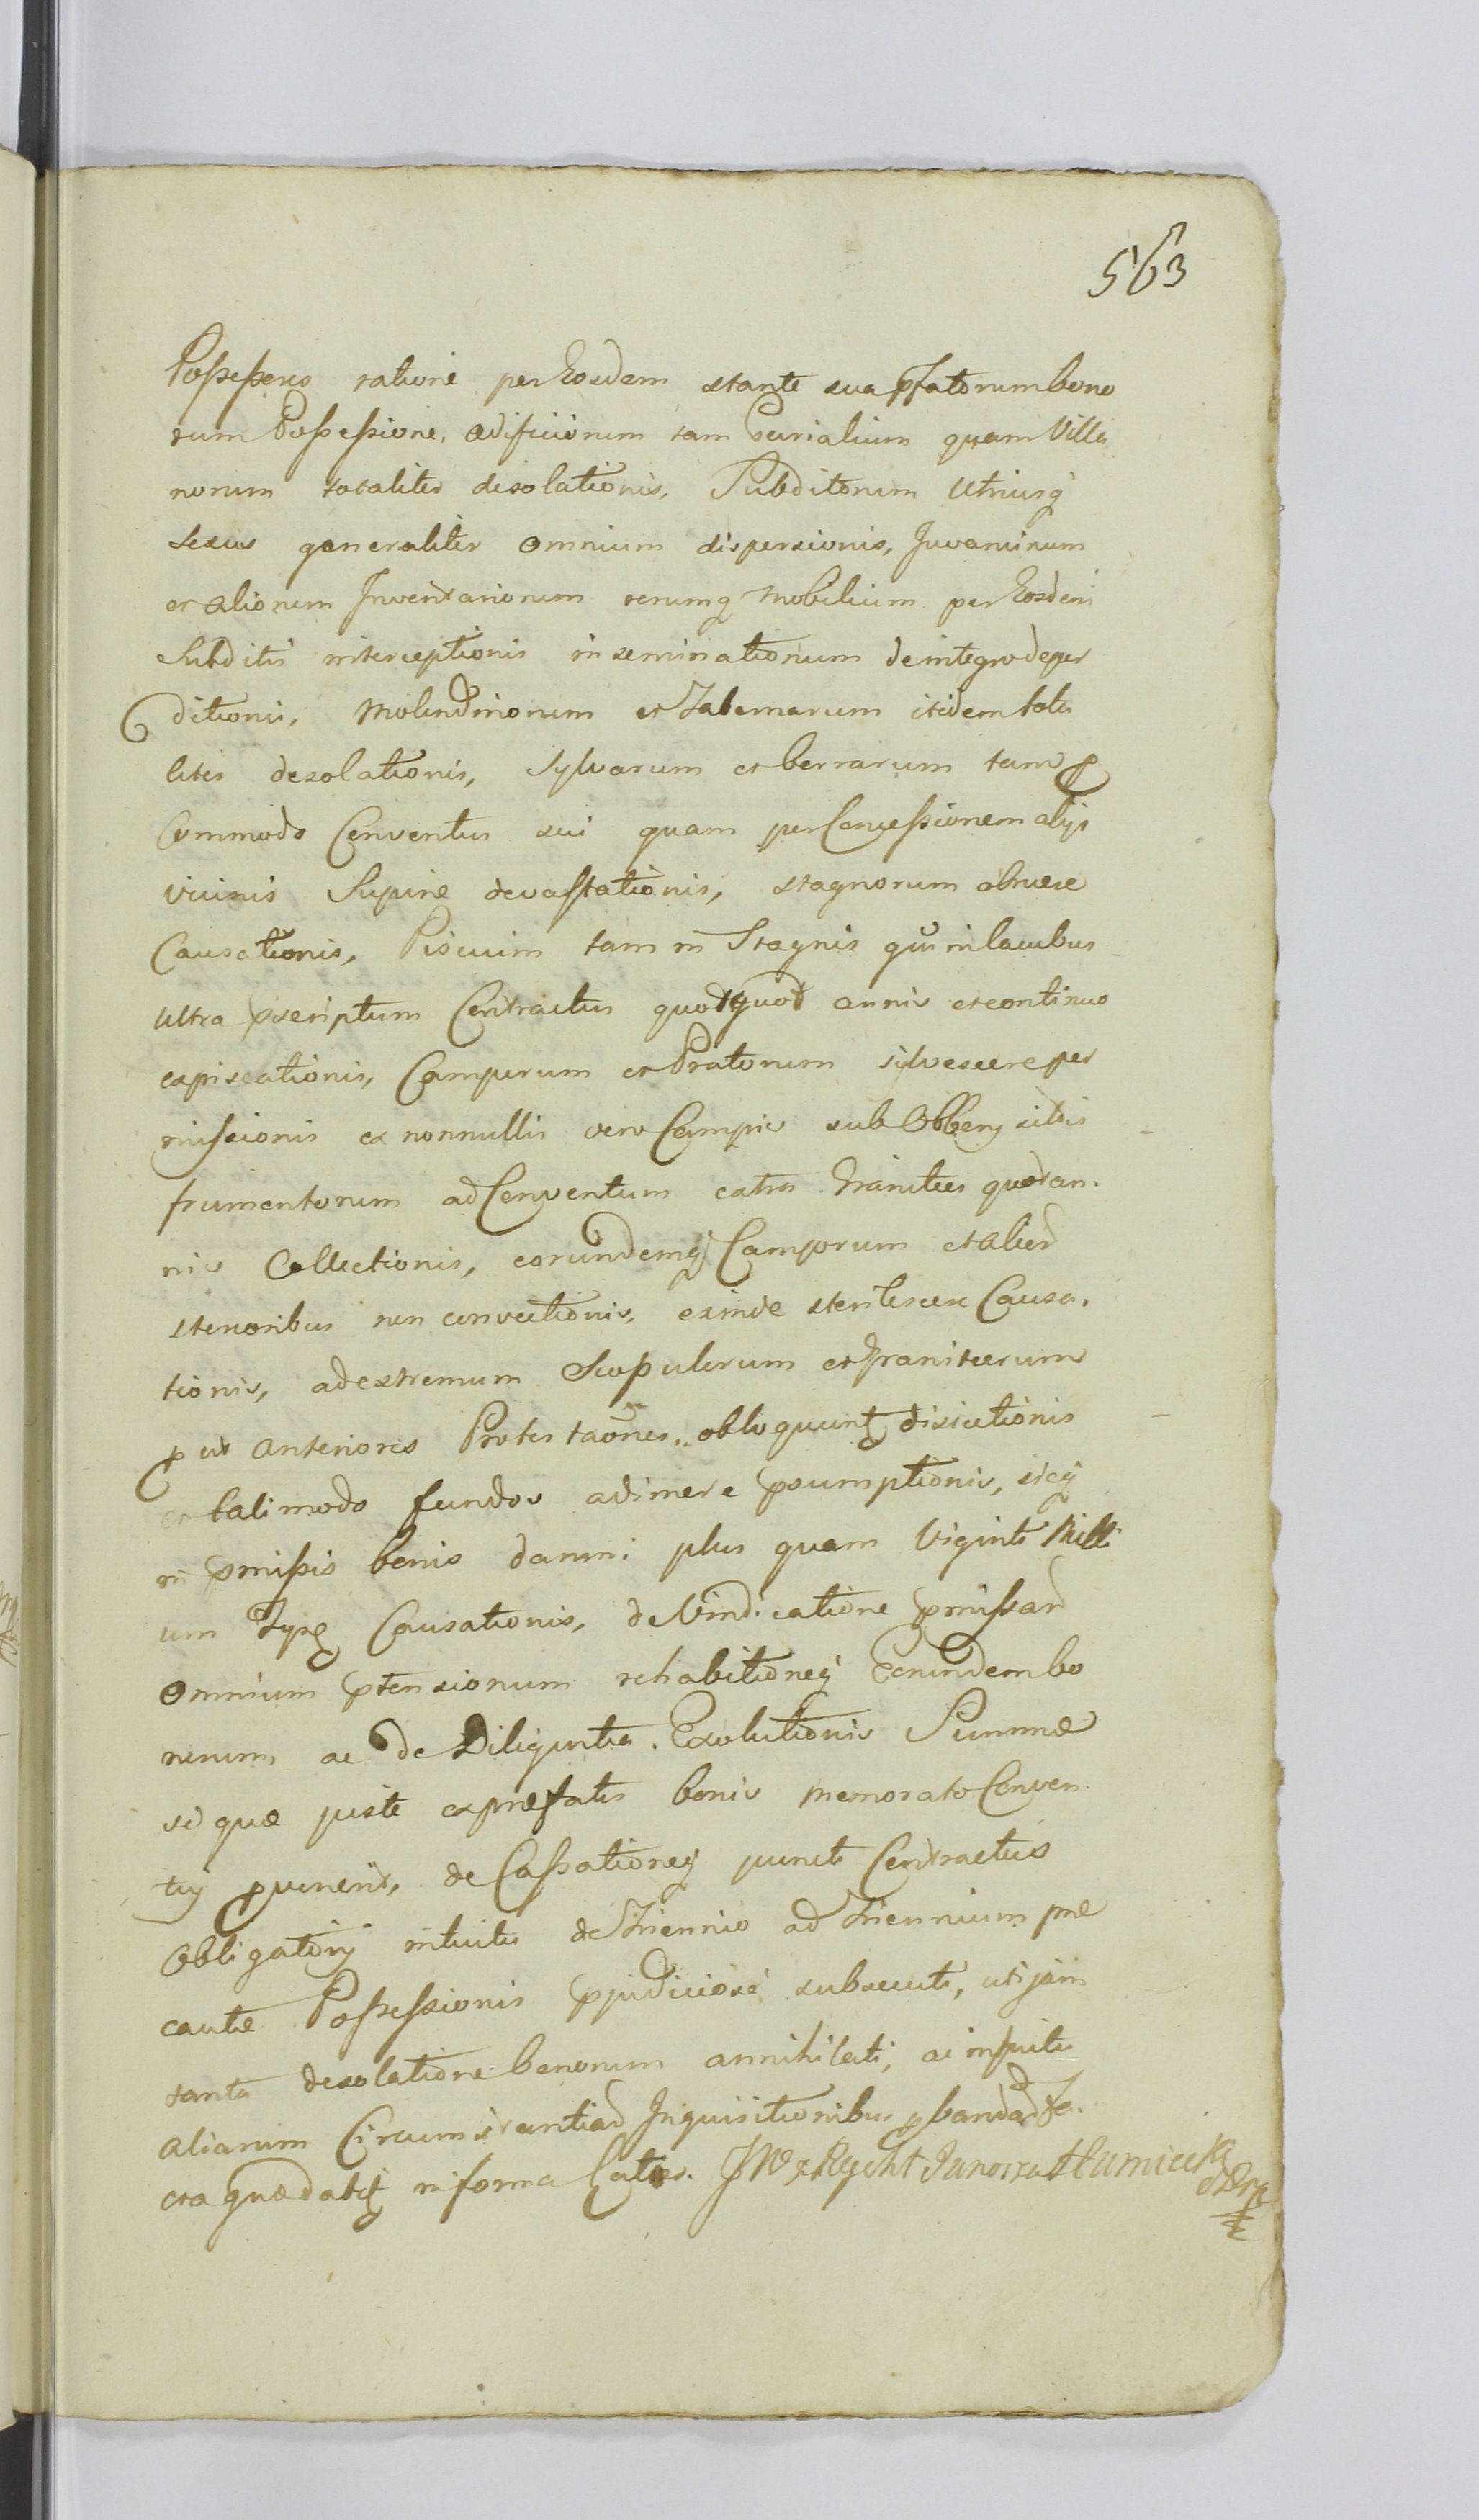 563
Possessores ratione per Eosdem stante sua pfatorum bono
rum Possessione, ædificiorum tam Curialium quam Villa
norum totaliter desolationis, Subditorum Utriusq
sexus generaliter omnium dispersionis, Juvaminum
et aliorum Inventariorum rerumq mobilium per Eosdem
Subditis interceptionis inseminationum de integro deper
ditionis, Molendinorum et Tabernarum itidem tota
liter desolationis, Sylvarum et berrarum tam p
Commodo Conventus sui quam per Concessionem alijs
vicinis Supine devastationis, stagnorum obruere
Causationis, Piscium tam in Stagnis qm in lacubus
ultra pscriptum Contractus quotquot annis et continuo
expiscationis, Camporum et Pratorum silvescere per
missionis ex nonnullis vero Campis sub Obbery sitis
frumentorum ad Conventum extra Granities quotan
nis Collectionis, eorundemq Camporum et aliud
stercoribus non convectionis, exinde sterilescere Causa
tionis, ad extremum Scopulorum et Granicierum
put anteriores Protestaones obloquunt disiectionis
et tali modo fundos adimere psumptionis, sicq
in pmissis bonis damni plus quam Viginti Milli
um Typq Causationis, de Vindicatione pmissar
omnium ptensionum rehabitioneq Eorundem bo
norum, ac de Diligentia Exolutionis Summæ
si quæ juste ex præfatis bonis memorato Conven
tuj pvenerit, de Cassationeq puncti Contractus
Obligatorij intuitu de Triennio ad Triennium præ
cautæ Possessionis pjudiciose subsecuti, uti jam
tanta desolatione bonorum annihilati, ac intuitu
aliarum Circumstantiar Inquisitionibus pbandar Fa
cta quædabit in forma latior. JW Rgcht Junosza